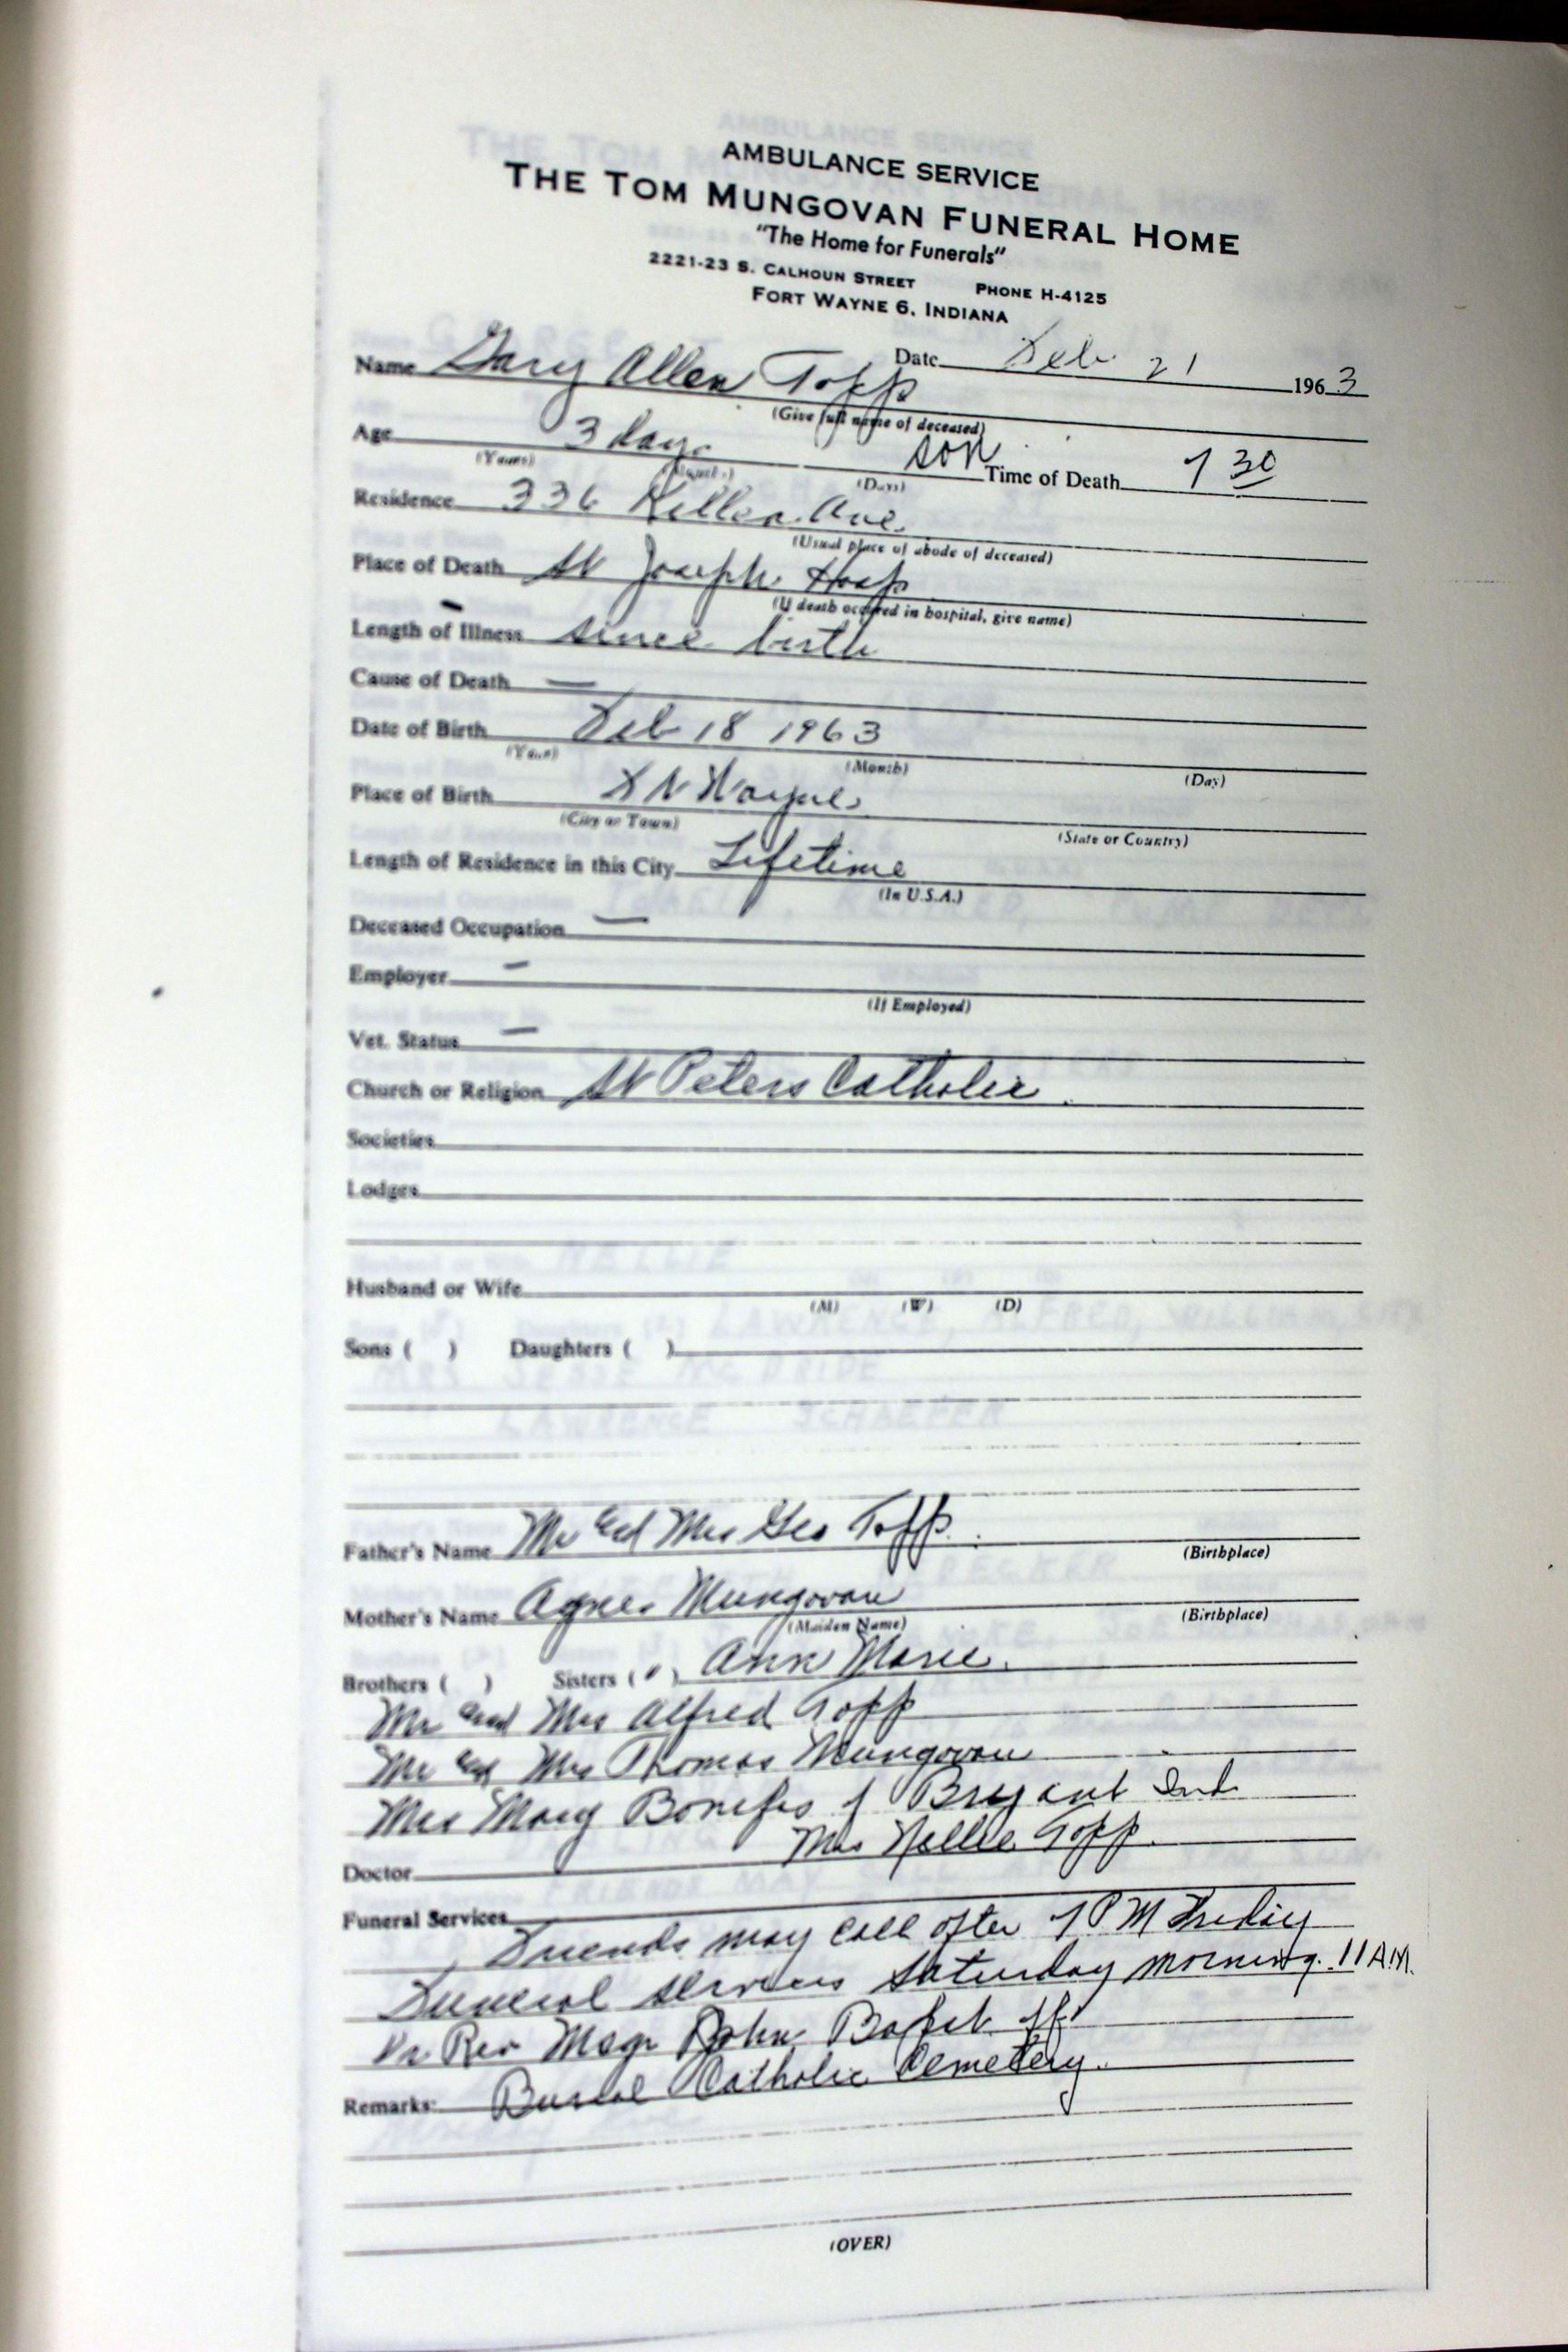 AMBULANCE SERVICE
THE TOM MUNGOVAN FUNERAL HOME
"The Home for Funerals"
2221-23 S. CALHOUN STREET PHONE H-4125
FORT WAYNE 6, INDIANA
Date Feb 21 1963
Name Gary Allen Topp
(Give full name of deceased)
Age 3 days son Time of Death 7 30
(Years) (Months) (Days)
Residence 336 Killea Ave.
(Usual place of abode of deceased)
Place of Death St Joseph Hosp
(If death occured in hospital, give name)
Length of Illness since birth
Cause of Death —
Date of Birth Feb 18 1963
(Year) (Month) (Day)
Place of Birth Ft Wayne
(City or Town) (State or Country)
Length of Residence in this City Lifetime
(In U.S.A.)
Deceased Occupation —
Employer —
(If Employed)
Vet. Status —
Church or Religion St Peters Catholic
Societies
Lodges
Husband or Wife
(M) (W) (D)
Sons ( ) Daughters ( )
Father's Name Mr and Mrs Geo Topp
(Birthplace)
Mother's Name Agnes Mungovan
(Maiden Name) (Birthplace)
Brothers ( ) Sisters ( ) Ann Marie
Mr and Mrs Alfred Topp
Mr and Mrs Thomas Mungovan
Mrs Mary of Bryant Ind
Mrs Nellie Topp
Doctor
Funeral Services
Friends may call after 7 PM Friday
Funeral services Saturday morning. 11 A.M.
Rev Msgr John Bapst off
Remarks: Burial Catholic Cemetery.
(OVER)